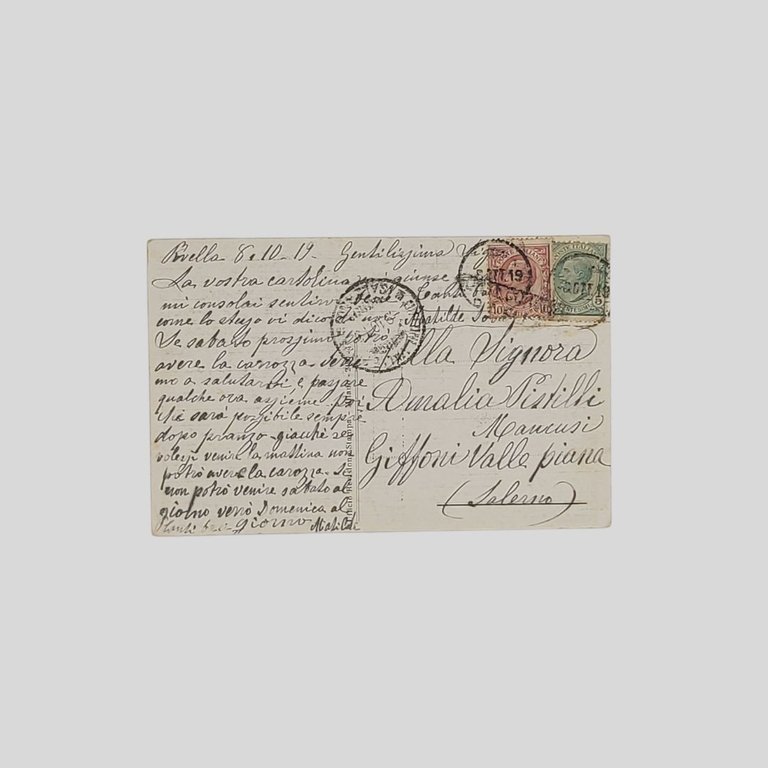 8. 10 - 19. Gentilissima
La vostra cartolina mi giunse e
mi consolai sentirvi bene
come lo stesso vi dico di noi.
Se sabato prossimo potrò
avere la carrozza
mo a salutarvi e passare
qualche ora assieme. per
chè sarà possibile sempre
dopo pranzo - giacchè se
volessi venire la mattina non
potrò avere la carozza. Se
non potrò venire sabato al
giorno verrò Domenica al
giorno
Tanti
Matilde
10
5
Alla Signora
Amalia Pistilli
Mancusi
Giffoni Valle piana
(Salerno)